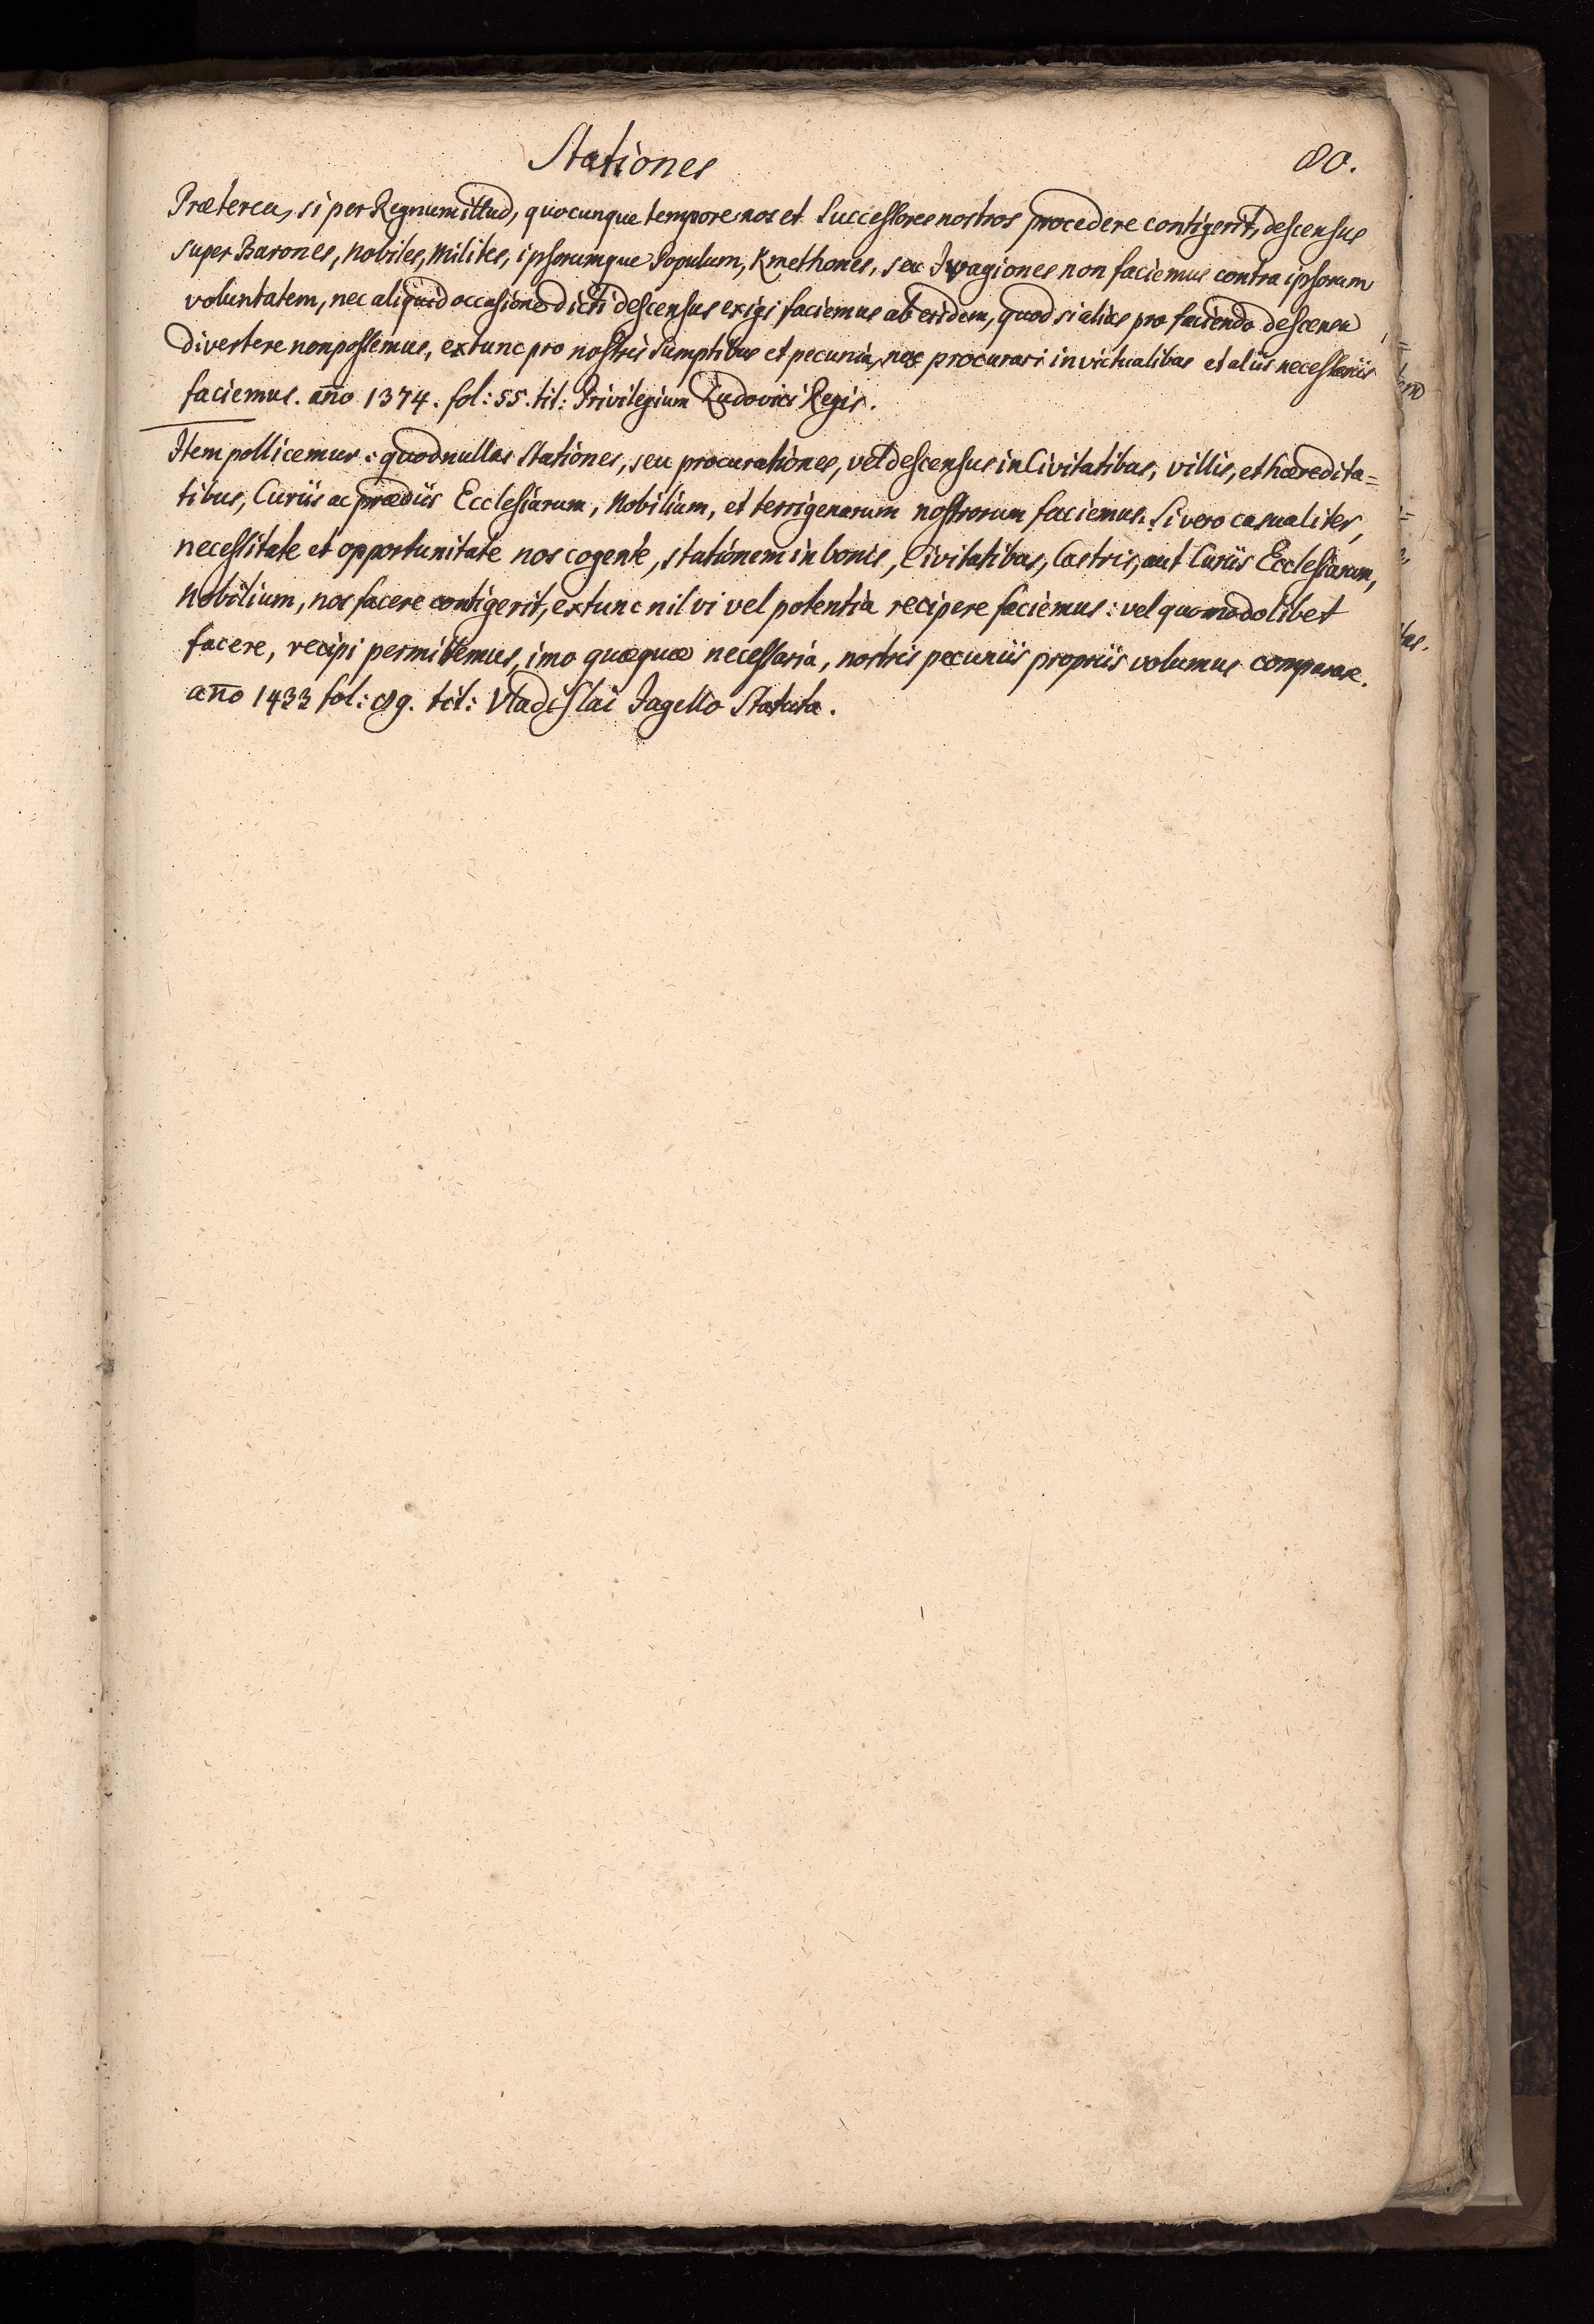 Stationes
80.
Præterea, si per Regnum illud, quocunque tempore nos et Successores nostros procedere contigerit, descensus
super Barones, Nobiles, Milites, ipsorumque Populum, Kmethones, seu Iwagiones non faciemus contra ipsorum
voluntatem, nec aliquid occasione dicti descensus exigi faciemus ab eisdem, quod si alias pro faciendo descensu
divertere non possemus, extunc pro nostris sumptibus et pecunia, nos procurari in victualibus et aliis necessariis
faciemus. año 1374. fol: 55. tit: Privilegium Ludovici Regis.
Item pollicemur: quod nullas stationes, seu procurationes, vel descensus in Civitatibus, villis, et hæredita=
tibus, Curiis ac prædiis Ecclesiarum, Nobilium, et terrigenarum nostrorum faciemus. Si vero casualiter,
necessitate et opportunitate nos cogente, stationem in bonis, Civitatibus, Castris, aut Curiis Ecclesiarum,
Nobilium, nos facere contigerit, extunc nil vi vel potentia recipere faciemus: vel quomodolibet
facere, recipi permittemus, imo quæquæ necessaria, nostris pecuniis propriis volumus comparare.
año 1433 fol: 89. tit: Vladislai Jagello Statuta.